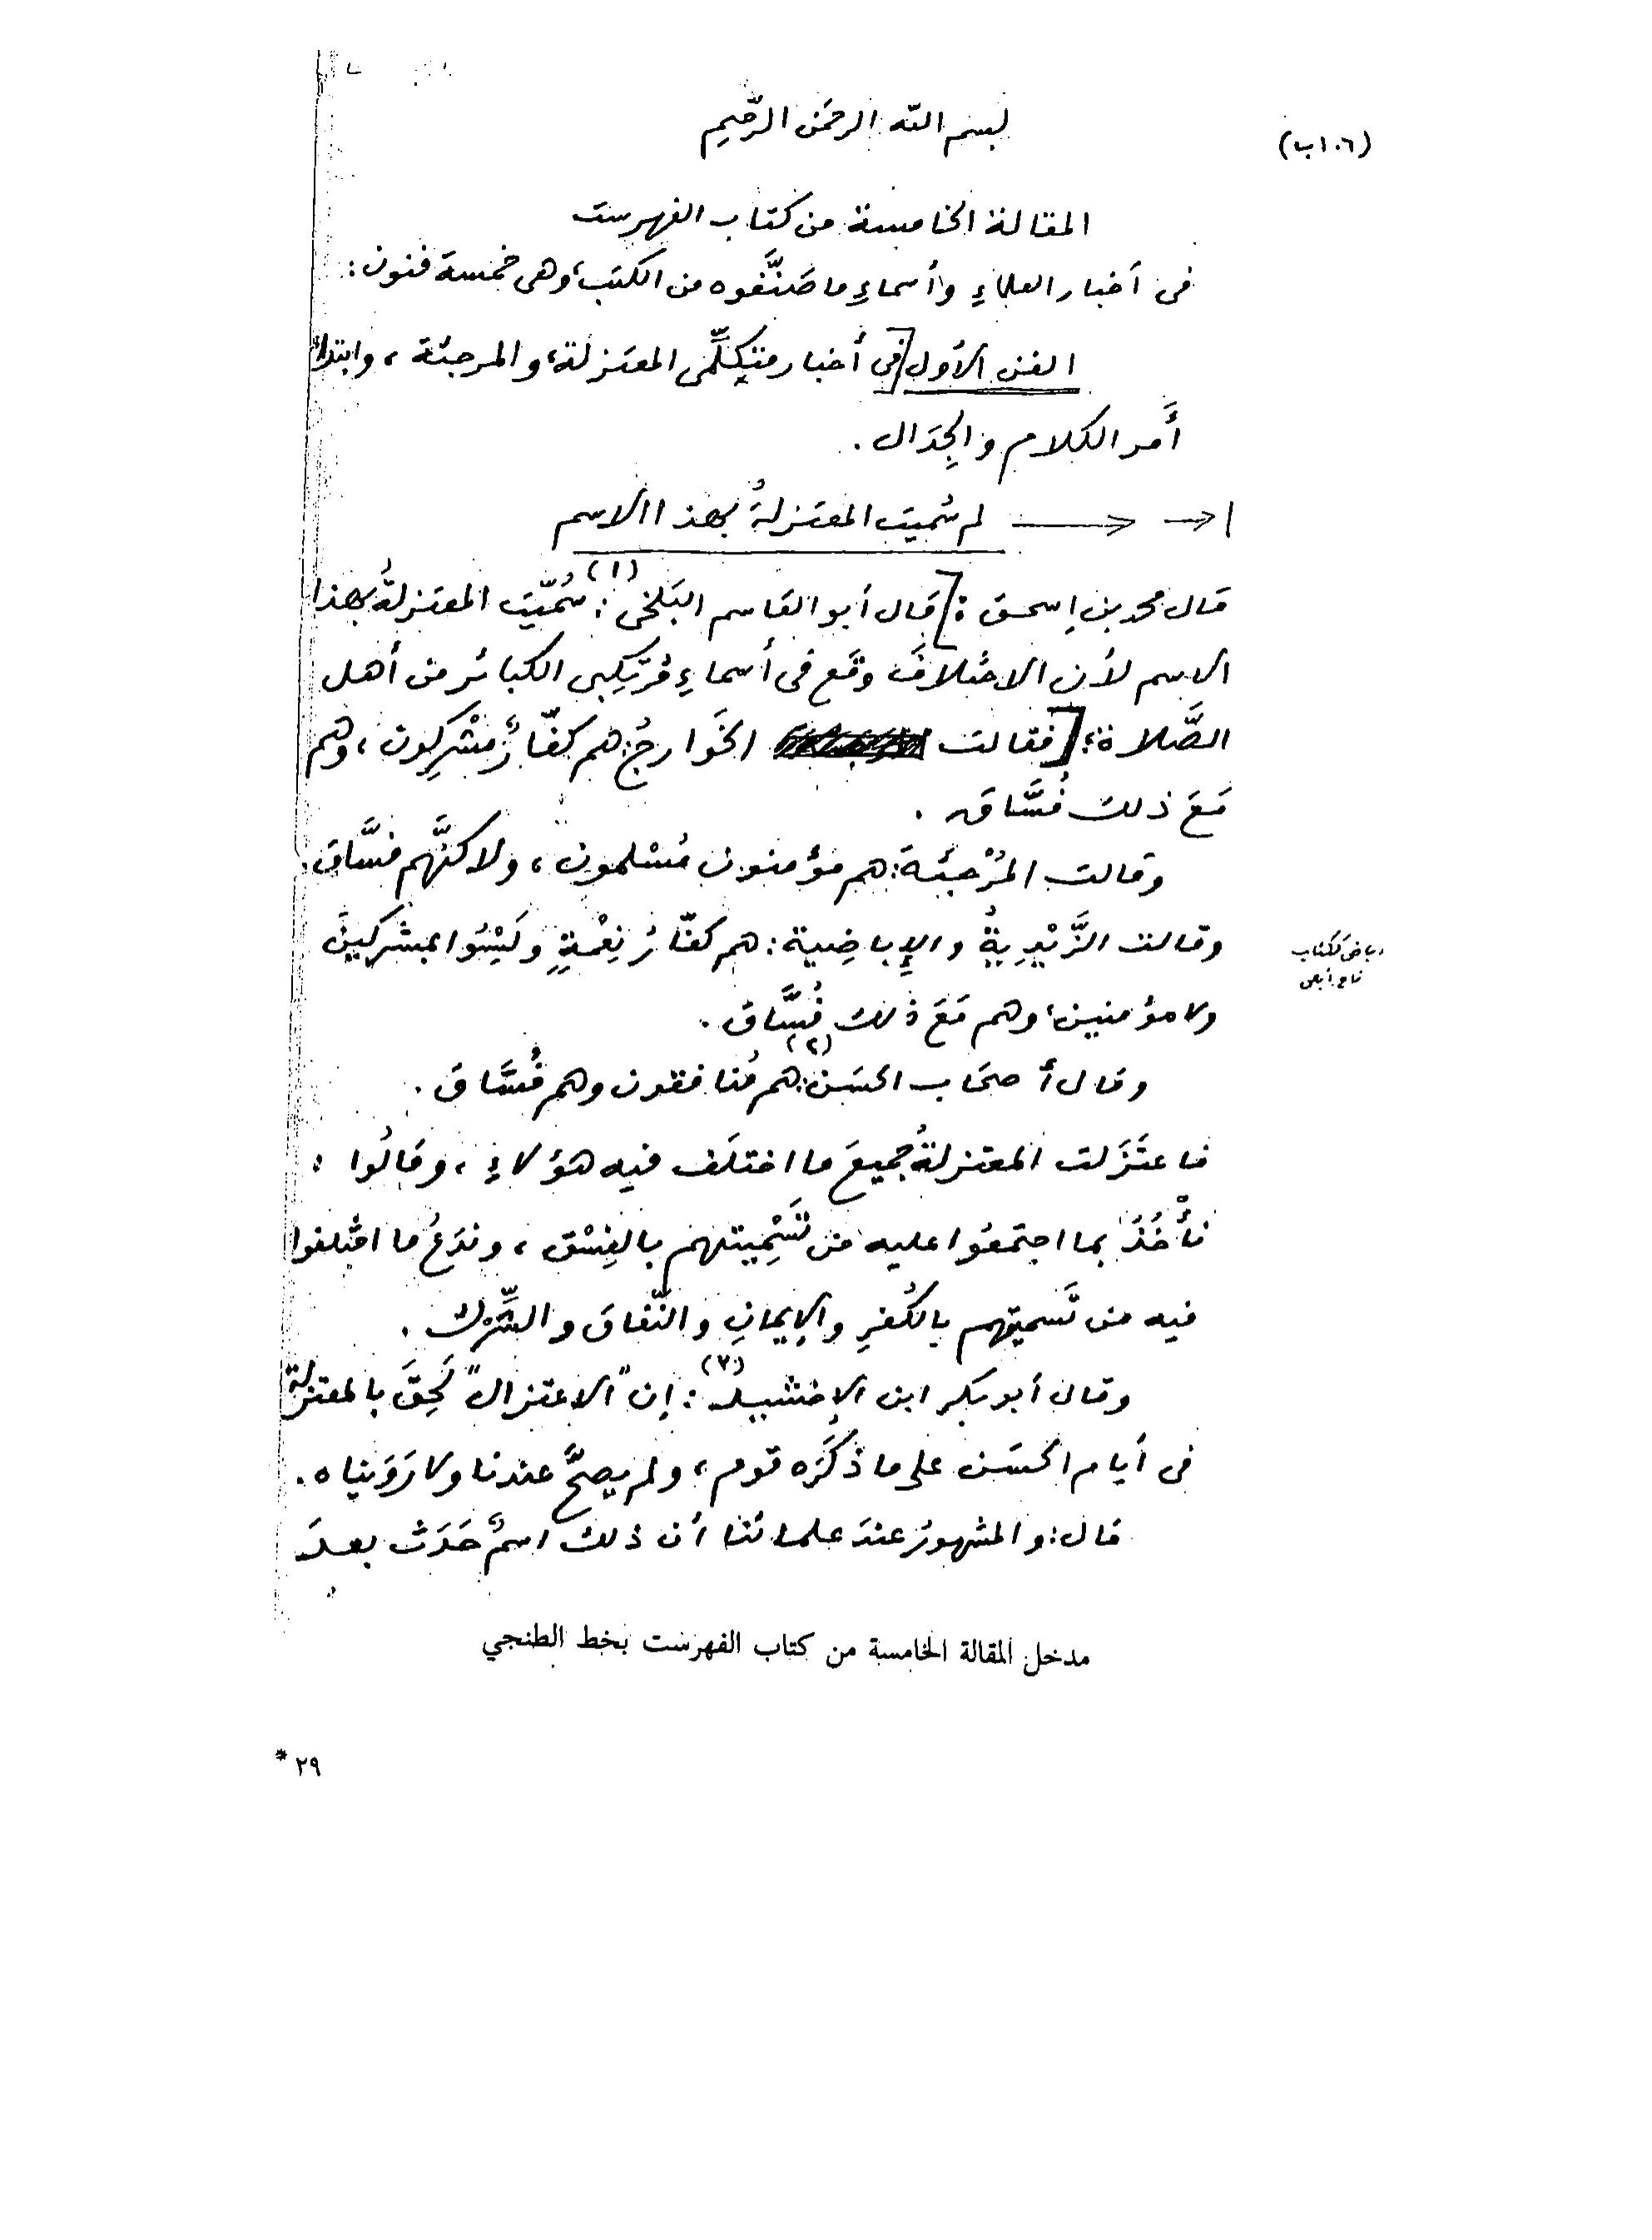 (١٠٦ب)
بسم الله الرحمَن الرّحِيم
المقالة الخامسة من كتاب الفهرست
فى أخبار العلماءِ وأسماءِ ما صَنَّفوه من الكتب، وهى خمسة فنون:
الفن الأول [فى أخبار متكلِّمى المعتزلة، والمرجئة، وابتداء
أَمر الكلام والجِدَال.
لم سُميت المعتزلةُ بهذا الاسم
قال محمد بن إسحق: [قال أبو القاسم البَلخى (١): سُمّيَت المعتزلةُ بهذا
الاسم لأن الاختلافَ وقَع فى أسماءِ مُرتَكِبى الكبائر من أهل
الصَّلاة؛ [فقالت الخَوارجُ: هم كفّارٌ مشْرِكون، وهم
مَعَ ذلك فُسَّاق.
وقالت المُرْجئَة: هم مؤمنون مُسْلمون، ولاكنَّهم فسَّاق.
وقالت الزَّيْدِيةُ والإِباضِية: هم كفّارُ نِعْمَةٍ ولَيْسُوا بمشركينَ
ولا مؤمنين، وهم مَعَ ذلك فُسَّاق.
وقال أصحَاب الحسَن (٢): هم مُنافقون وهم فُسَّاق.
فاعتَزَلت المعتزلةُ جميعَ ما اختلَف فيه هؤلاءِ، وقالُوا:
نأْخُذُ بما اجتمعُوا عليه من تَسْمِيتهم بالفِسْق، وندَعُ ما اختلفوا
فيه من تَسميتهم بالكُفرِ والإِيمانِ والنّفاق والشِّرك.
وقال أبو بكر ابن الإخشيد (٣): إن "الاعتزال" لَحِقَ بالمعتزلة
فى أيام الحسَن على ما ذكَرَه قوم، ولم يصحَّ عندنا ولا رَوَيناه.
قال: والمشهورُ عندَ علمائنا أن ذلك اسمٌ حَدَث بعدَ
مدخل المقالة الخامسة من كتاب الفهرست بخط الطنجي
٢٩ *